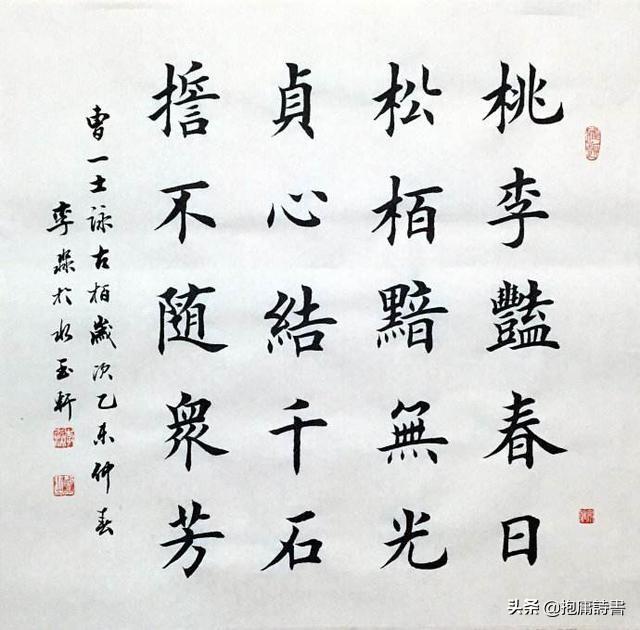 桃李豔春日
松栢黯無光
貞心結千石
擔不随衆芳
曹一士詠古栢歲次乙未仲春
李淼於水玉軒
头条 @抱庸詩書